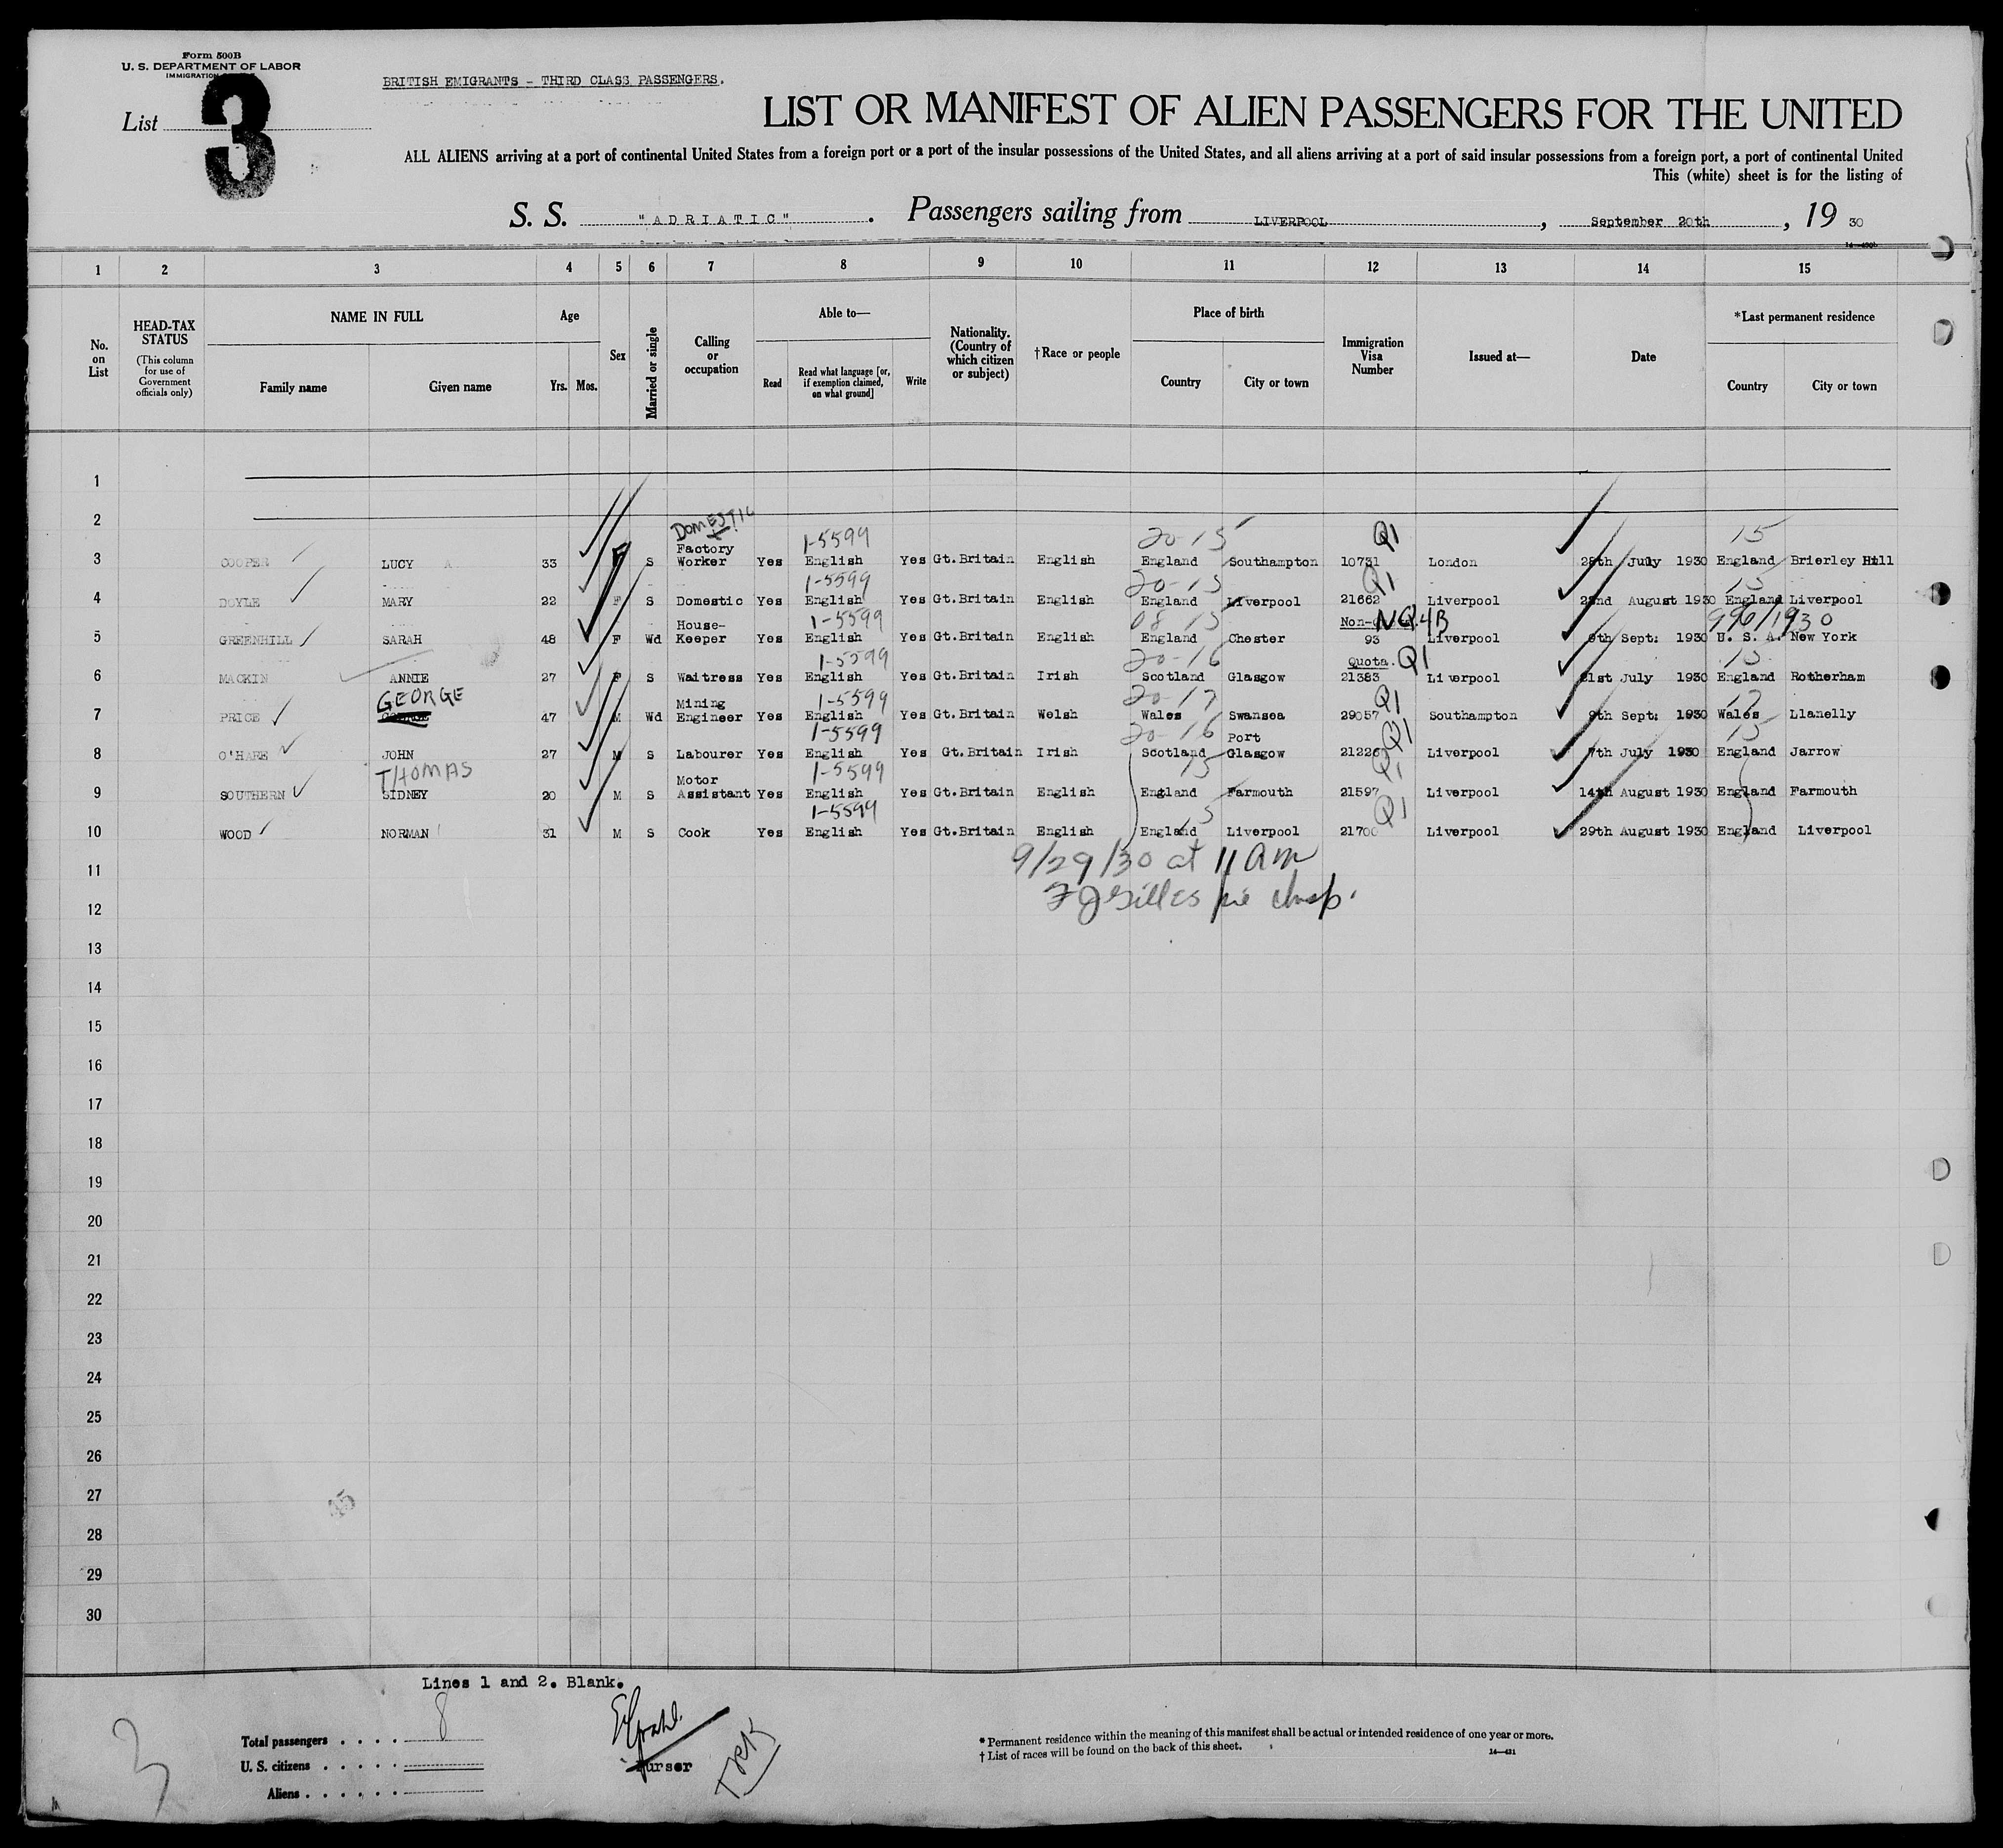 Form 500B
U. S. DEPARTMENT OF LABOR
IMMIGRATION
List 3
BRITISH EMIGRANTS - THIRD CLASS PASSENGERS.
LIST OR MANIFEST OF ALIEN PASSENGERS FOR THE UNITED
ALL ALIENS arriving at a port of continental United States from a foreign port or a port of the insular possessions of the United States, and all aliens arriving at a port of said insular possessions from a foreign port, a port of continental United
This (white) sheet is for the listing of
S. S. "ADRIATIC". Passengers sailing from LIVERPOOL, September 20th, 19 30
1 2 3 4 5 6 7 8 9 10 11 12 13 14 15
No. on List
HEAD-TAX STATUS (This column for use of Government officials only)
NAME IN FULL
Family name Given name
Age
Yrs. Mos.
Sex
Married or single
Calling or occupation
Able to—
Read
Read what language [or, if exemption claimed, on what ground]
Write
Nationality. (Country of which citizen or subject)
†Race or people
Place of birth
Country City or town
Immigration Visa Number
Issued at—
Date
*Last permanent residence
Country City or town
1
2
DOMESTIC 1-5599 20-15 Q1 15
3 COOPER LUCY A 33 F S Factory Worker Yes English Yes Gt.Britain English England Southampton 10731 London 28th July 1930 England Brierley Hill
1-5599 20-15 Q1 15
4 DOYLE MARY 22 F S Domestic Yes English Yes Gt.Britain English England Liverpool 21662 Liverpool 22nd August 1930 England Liverpool
1-5599 08-15 Non- NQ4B 996/1930
5 GREENHILL SARAH 48 F Wd House-Keeper Yes English Yes Gt.Britain English England Chester 93 Liverpool 9th Sept: 1930 U. S. A. New York
1-5599 20-16 Quota. Q1 15
6 MACKIN ANNIE 27 F S Waitress Yes English Yes Gt.Britain Irish Scotland Glasgow 21383 Liverpool 31st July 1930 England Rotherham
GEORGE 1-5599 20-17 Q1 17
7 PRICE 47 M Wd Mining Engineer Yes English Yes Gt.Britain Welsh Wales Swansea 29057 Southampton 9th Sept: 1930 Wales Llanelly
1-5599 20-16 Q1 15
8 O'HARE JOHN 27 M S Labourer Yes English Yes Gt.Britain Irish Scotland Port Glasgow 21226 Liverpool 7th July 1930 England Jarrow
THOMAS 1-5599 15 Q1
9 SOUTHERN SIDNEY 20 M S Motor Assistant Yes English Yes Gt.Britain English England Farmouth 21597 Liverpool 14th August 1930 England Farmouth
1-5599 15 Q1
10 WOOD NORMAN 31 M S Cook Yes English Yes Gt.Britain English England Liverpool 21700 Liverpool 29th August 1930 England Liverpool
11 9/29/30 at 11 am
12 F J Gillespie Insp.
13
14
15
16
17
18
19
20
21
22
23
24
25
26
27
28
29
30
Lines 1 and 2. Blank.
Total passengers . . . . 8
U. S. citizens . . . . .
Aliens . . . . . .
3
Purser
* Permanent residence within the meaning of this manifest shall be actual or intended residence of one year or more.
† List of races will be found on the back of this sheet.
14—431